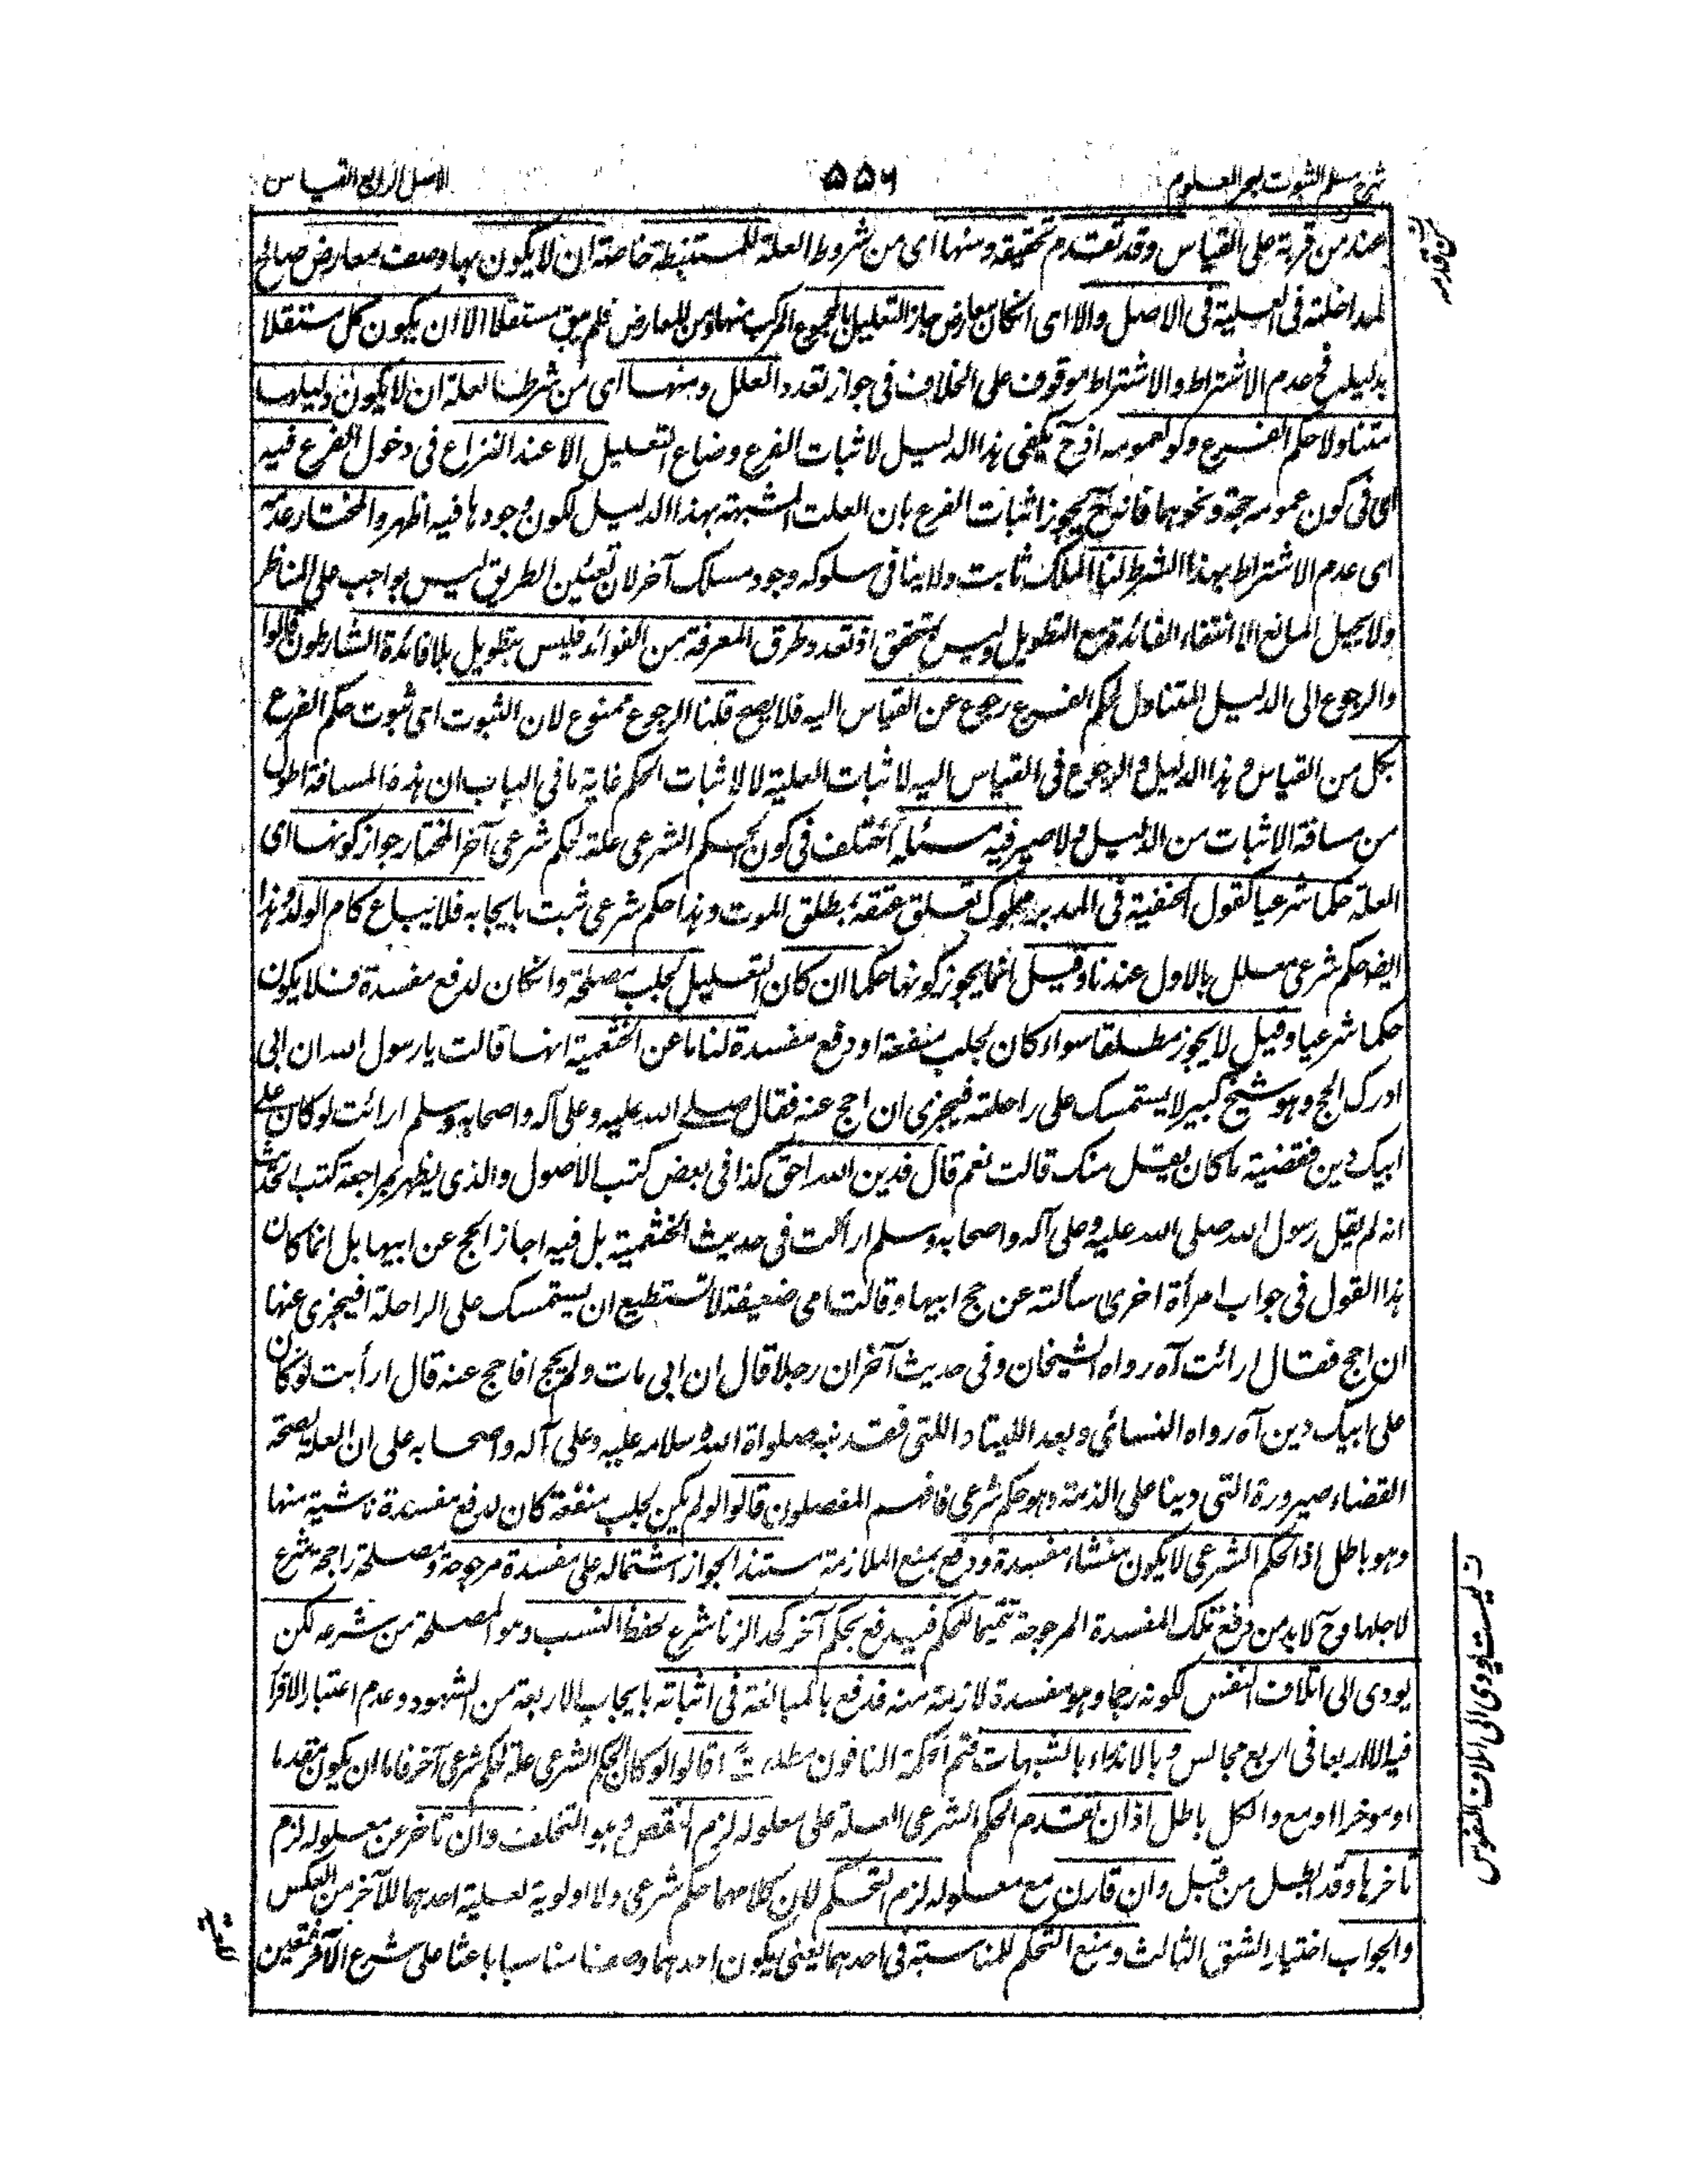 شرح مسلم الثبوت لبحر العلوم ۵۵۶ الاصل الرابع القياس
من قربة على القياس وقد تقدم تحقيقه ومنها اى من شروط العلة المستنبطة خاصة ان لا يكون بها وصف معارض صالح
للمداخلة فى العلية فى الاصل والا اى انكان معارض جاز التعليل بالمجموع المركب منها ومن المعارض فلم يبق مستقلا الا ان يكون كل مستقلا
بدليله فح عدم الاشتراط والاشتراط موقوف على الخلاف فى جواز تعدد العلل ومنها اى من شرط العلة ان لا يكون دليلها
متناولا حكم الفرع ولو لعمومه اذ ح يكفى هذا الدليل لاثبات الفرع وضاع التعليل الا عند النزاع فى دخول الفرع فيه
اى فى كون عمومه حجة ونحوهما فانه ح يجوز اثبات الفرع بان العلة المثبتة بهذا الدليل لكون وجودها فيه اظهر والمختار عدمه
اى عدم الاشتراط بهذا الشرط لنا المسلك ثابت ولا ينافى سلوكه وجود مسلك آخر لان تعيين الطريق ليس بواجب على المناظر
ولا يحيل المانع الا انتفاء الفائدة مع التطويل وليس بمتحقق اذ تعدد طرق المعرفة من الفوائد فليس بتطويل بلا فائدة الشارطون قالوا
والرجوع الى الدليل المتناول لحكم الفرع رجوع عن القياس اليه فلا يصح قلنا الرجوع ممنوع لان الثبوت اى ثبوت حكم الفرع
بكل من القياس وهذا الدليل والرجوع فى القياس اليه لاثبات العلية لا لاثبات الحكم غاية ما فى الباب ان هذه المسافة اطول
من مسافة الاثبات من الدليل ولا ضير فيه مسئلة اختلف فى كون الحكم الشرعى علة لحكم شرعى آخر المختار جواز كونها اى
العلة حكما شرعيا كقول الحنفية فى المدبر مملوك تعلق عتقه بمطلق الموت وهذا حكم شرعى ثبت بايجابه فلا يباع كام الولد وهذا
ايضا حكم شرعى معلل بالاول عندنا وقيل انما يجوز كونها حكما ان كان التعليل لجلب مصلحة وانكان لدفع مفسدة فلا يكون
حكما شرعيا وقيل لا يجوز مطلقا سواء كان لجلب منفعة او دفع مفسدة لنا ما عن الخثعمية انها قالت يا رسول الله ان ابى
ادرك الحج وهو شيخ كبير لا يستمسك على راحلته فيجزى ان احج عنه فقال صلى الله عليه وعلى آله واصحابه وسلم ارائت لو كان على
ابيك دين فقضيته ما كان يقبل منك قالت نعم قال فدين الله احق كذا فى بعض كتب الاصول والذى يظهر بمراجعة كتب الحديث
انه لم يقل رسول الله صلى الله عليه وعلى آله واصحابه وسلم ارائت فى حديث الخثعمية بل فيه اجاز الحج عن ابيها بل انما كان
هذا القول فى جواب امرأة اخرى سألته عن حج ابيها وقالت امى ضعيفة لا تستطيع ان يستمسك على الراحلة افيجزى عنها
ان احج فقال ارائت آه رواه الشيخان وفى حديث آخر ان رجلا قال ان ابى مات ولم يحج افاحج عنه قال ارأيت لو كان
على ابيك دين آه رواه النسائى وبعد اللتيا واللتى فقد نبه صلواة الله وسلامه عليه وعلى آله واصحابه على ان العلة لصحة
القضاء صيرورة التى دينا على الذمة وهو حكم شرعى فافهم المفصلون قالوا لو لم يكن لجلب منفعة كان لدفع مفسدة ناشية منها
وهو باطل اذ الحكم الشرعى لا يكون منشاء مفسدة ودفع بمنع الملازمة مستندا لجواز اشتماله على مفسدة مرجوحة ومصلحة راجحة شرع
لاجلها وح لا بد من دفع تلك المفسدة المرجوحة تتميما للحكم فيدفع بحكم آخر كحد الزنا شرع لحفظ النسب وهو المصلحة من شرعه لكن
يودى الى اتلاف النفس لكونه رجما وهو مفسدة لازمة منه فدفع بالمبالغة فى اثباته بايجاب الاربعة من الشهود وعدم اعتبار الاقرار
فيه الا اربعا فى اربع مجالس وبالاندراء بالشبهات فتم الحكمة النافون مطلقا قالوا لو كان الحكم الشرعى علة لحكم شرعى آخر فاما ان يكون متقدما
او موخرا او مع والكل باطل اذ ان تقدم الحكم الشرعى العلة على معلوله لزم النقض وهو التخلف وان تاخر عن معلوله لزم
تاخرها وقد ابطل من قبل وان قارن مع معلوله لزم التحكم لان كلامهما حكم شرعى ولا اولوية لعلية احدهما للآخر من العكس
والجواب اختيار الشق الثالث ومنع التحكم للمناسبة فى احدهما يعنى يكون احدهما وصفا مناسبا باعثا على شرع الآخر فتعين